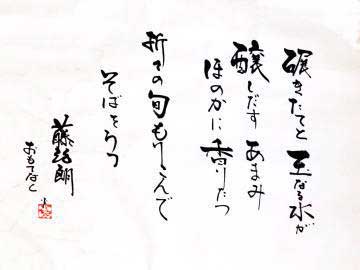 碾きたてと 玉なる水が
醸しだす あまみ
ほのかに 香りたつ
折々の旬もりこんで
そばをうつ
おもてなし